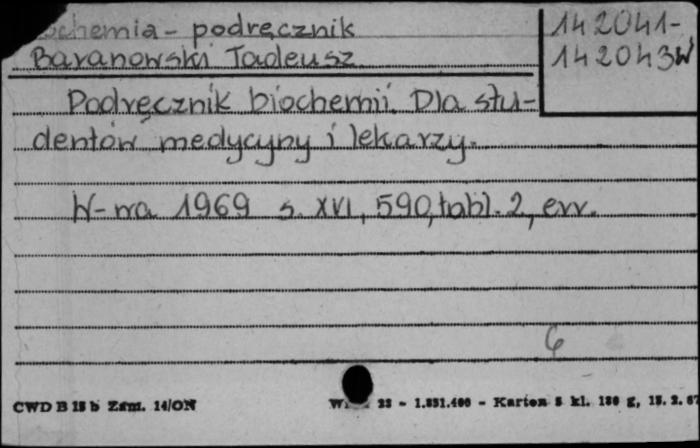 ochemia - podręcznik
142041-
142043W
Baranowski Tadeusz
Podręcznik biochemii. Dla stu-
dentów medycyny i lekarzy.
W-wa 1969 s. XVI, 590, tabl. 2, err.
6
CWD B 15 b Zam. 14/ON
23 - 1.831.400 - Karton 5 kl. 180 g, 15. 2. 67